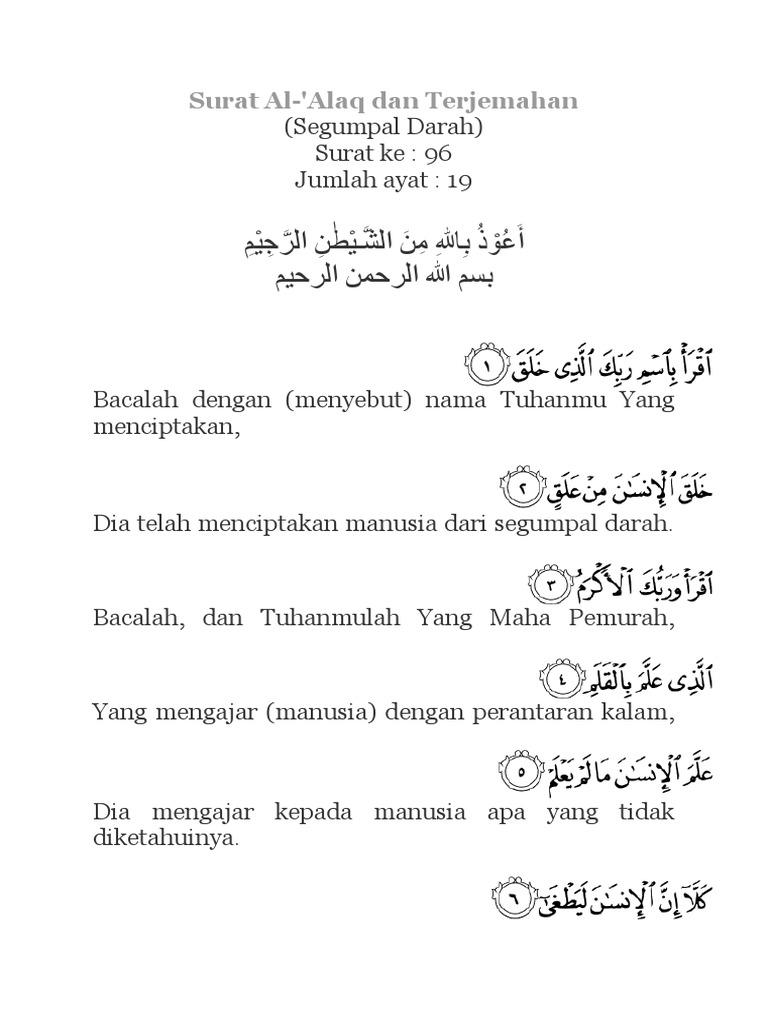 Surat Al-'Alaq dan Terjemahan
(Segumpal Darah)
Surat ke : 96
Jumlah ayat : 19
أَعُوْذُ بِاللهِ مِنَ الشَّيْطٰنِ الرَّجِيْمِ
بسم الله الرحمن الرحيم
ٱقْرَأْ بِٱسْمِ رَبِّكَ ٱلَّذِى خَلَقَ ١
Bacalah dengan (menyebut) nama Tuhanmu Yang
menciptakan,
خَلَقَ ٱلْإِنسَـٰنَ مِنْ عَلَقٍ ٢
Dia telah menciptakan manusia dari segumpal darah.
ٱقْرَأْ وَرَبُّكَ ٱلْأَكْرَمُ ٣
Bacalah, dan Tuhanmulah Yang Maha Pemurah,
ٱلَّذِى عَلَّمَ بِٱلْقَلَمِ ٤
Yang mengajar (manusia) dengan perantaran kalam,
عَلَّمَ ٱلْإِنسَـٰنَ مَا لَمْ يَعْلَمْ ٥
Dia mengajar kepada manusia apa yang tidak
diketahuinya.
كَلَّآ إِنَّ ٱلْإِنسَـٰنَ لَيَطْغَىٰٓ ٦